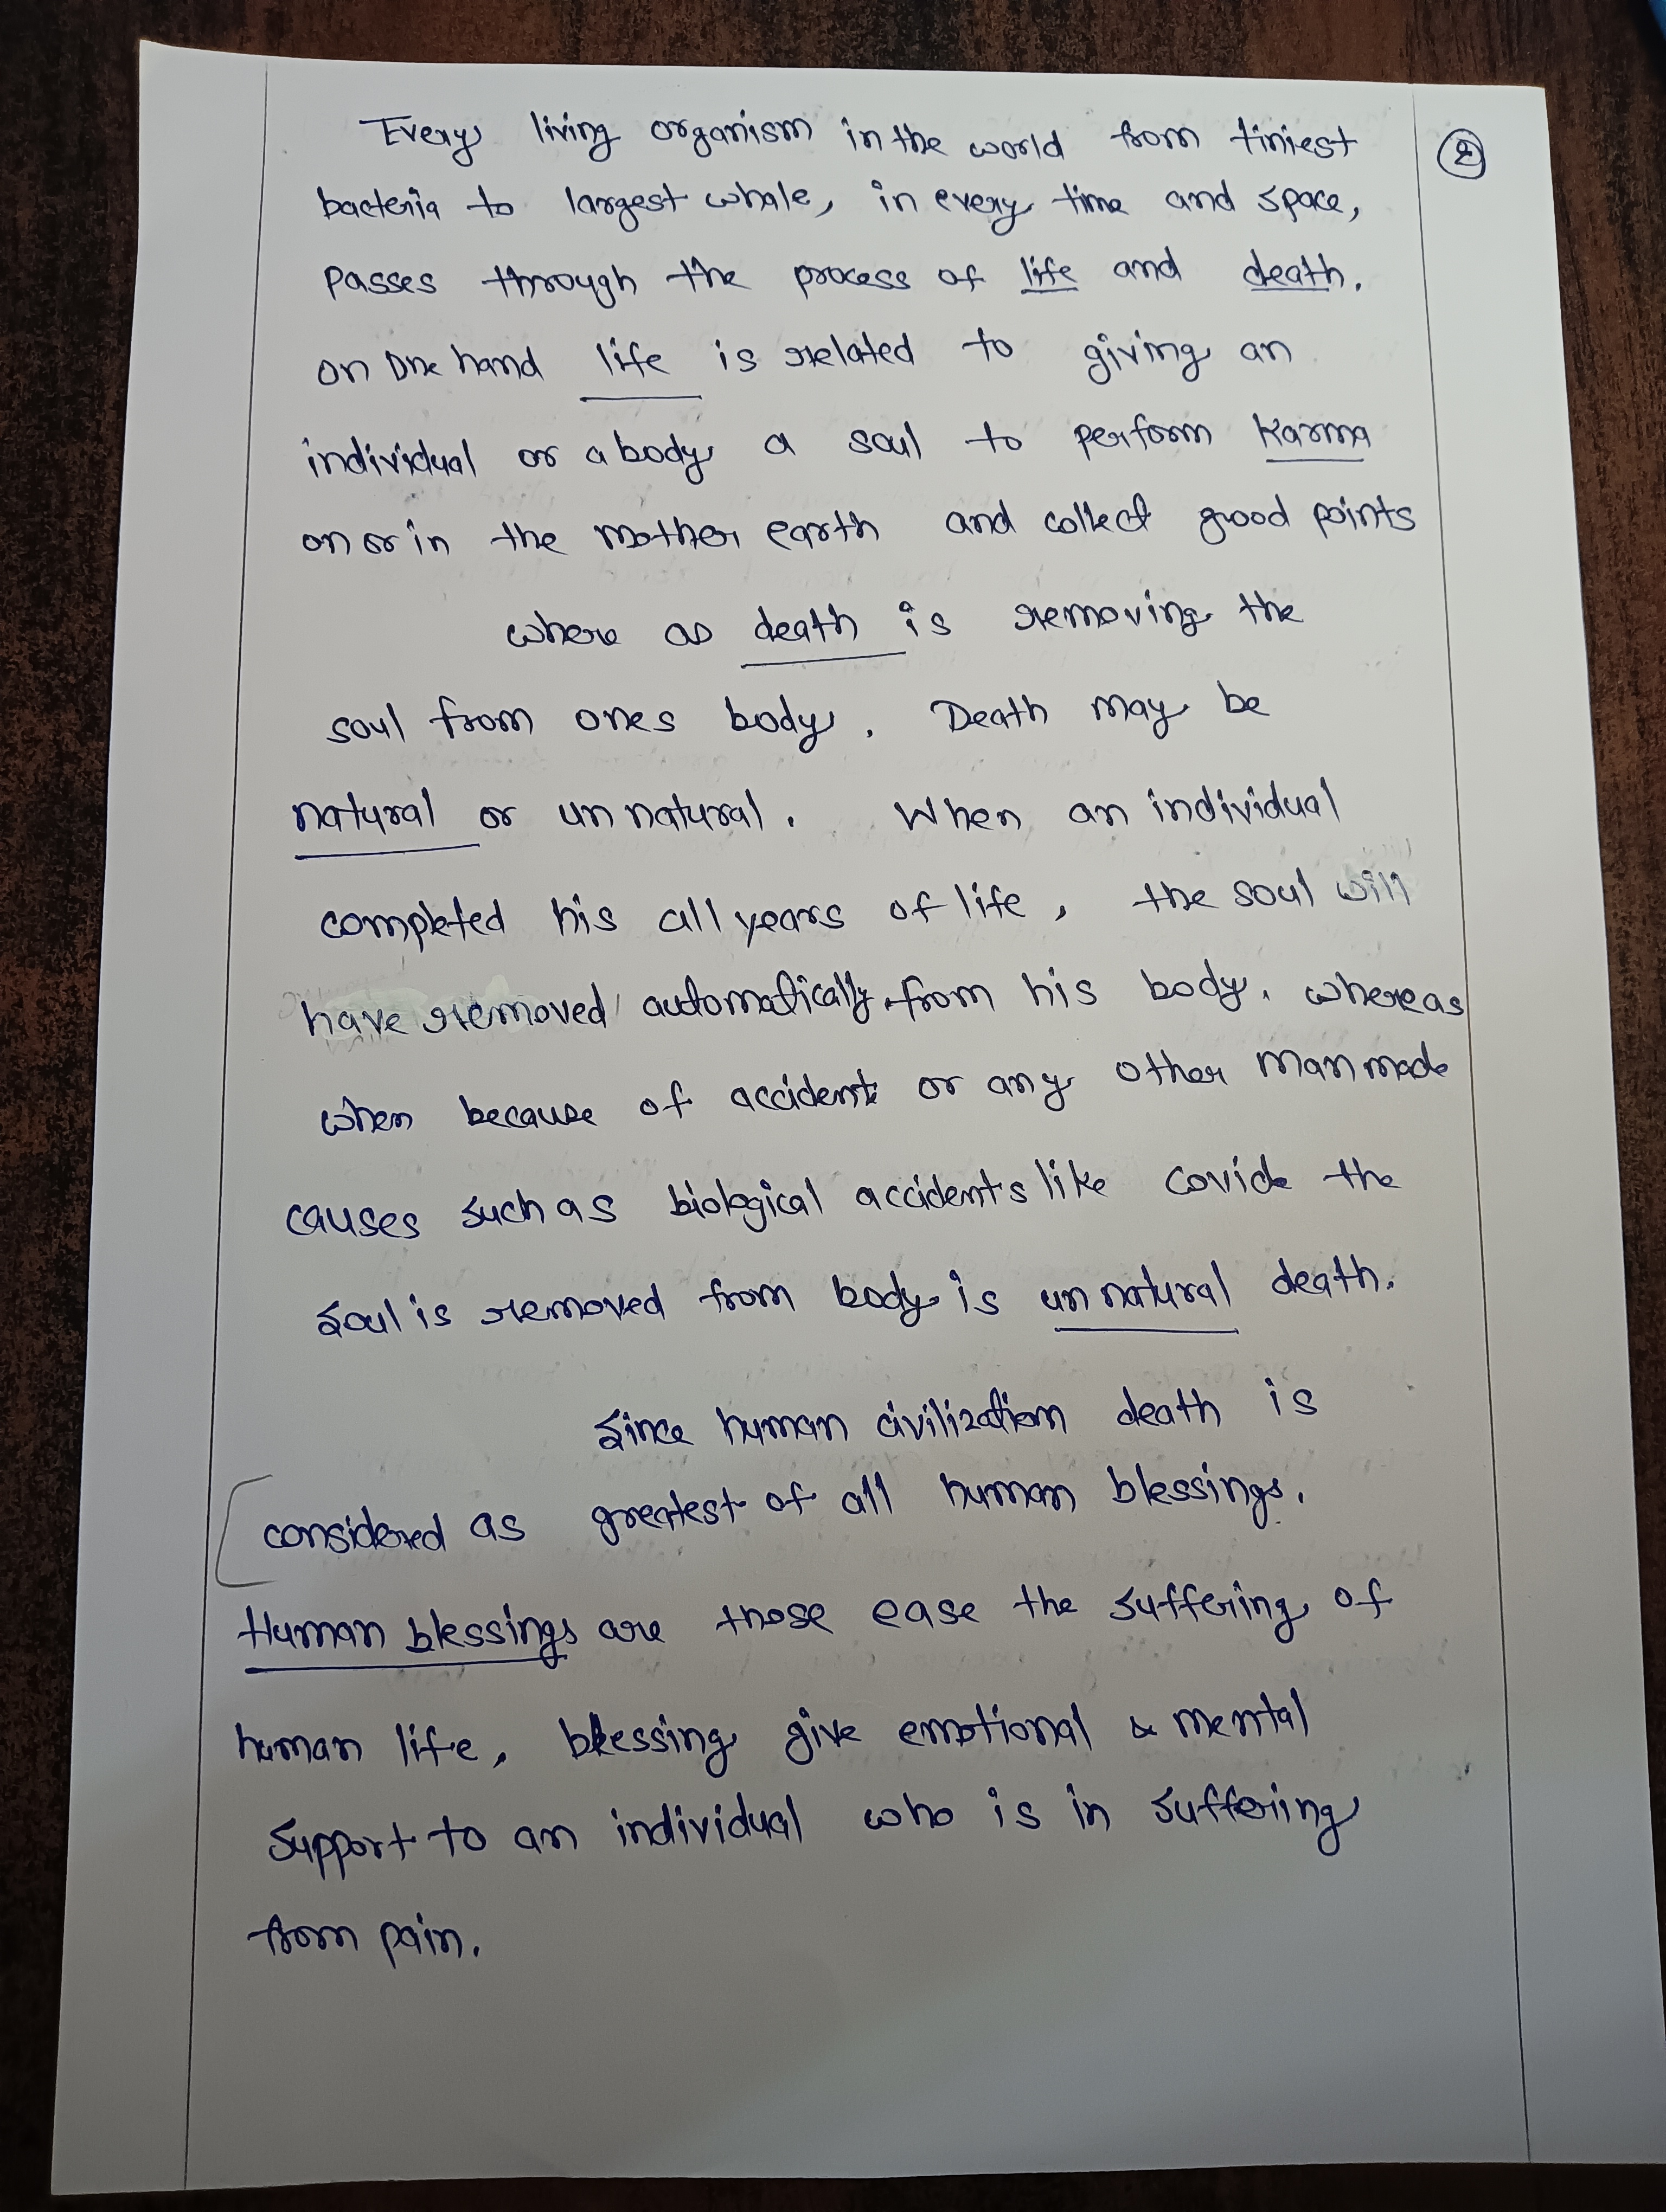 Every living organism in the world from tiniest
②
bacteria to largest whale, in every time and space,
passes through the process of life and death.
on one hand life is related to giving an
individual or a body a soul to perform Karma
on or in the mother earth and collect good points
where as death is removing the
soul from ones body. Death may be
natural or un natural. When an individual
completed his all years of life, the soul will
have removed automatically from his body. whereas
when because of accidents or any other man made
causes such as biological accidents like covide the
soul is removed from body is un natural death.
Since human civilization death is
considered as greatest of all human blessings.
Human blessings are those ease the suffering of
human life, blessing give emotional & mental
support to an individual who is in suffering
from pain.